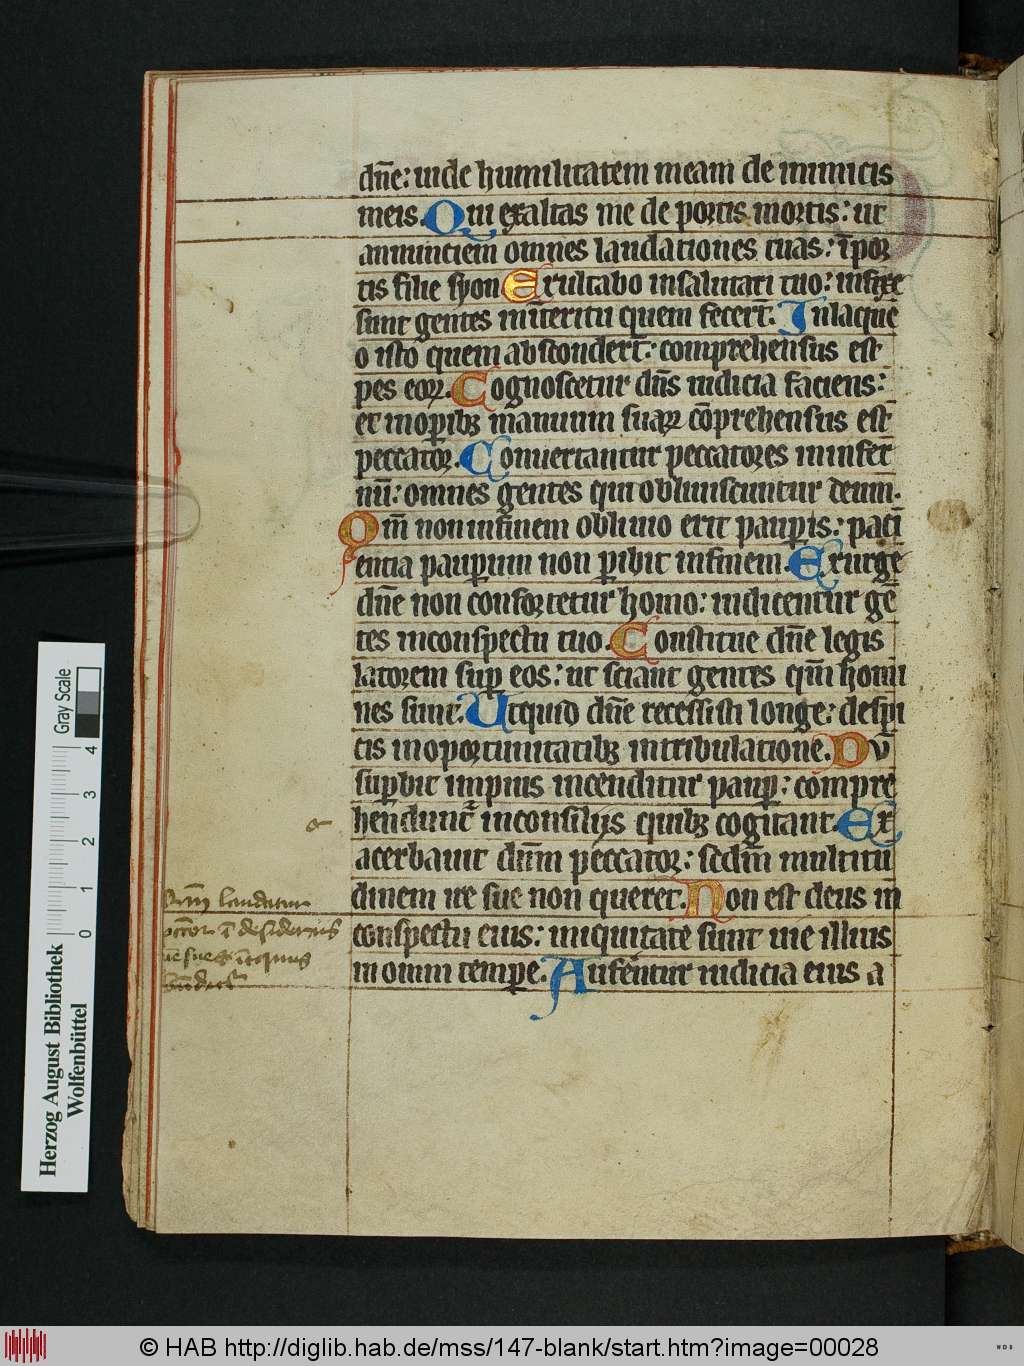 dn̄e: uide humilitatem meam de inimicis
meis. Qui exaltas me de portis mortis: ut
annunciem omnes laudationes tuas: ī por
tis filie syon Exultabo in salutari tuo: infixe
sunt gentes in īteritu quem fecer̄t. In laque
o isto quem absconder̄t: comprehensus est
pes eoꝝ. Cognoscetur dn̄s iudicia faciens:
et in oꝑibꝫ manuum suaꝝ cōprehensus est
peccator. Conuertantur peccatores in infer
nū: omnes gentes qui obliuiscuntur deum.
Qm̄ non in finem obliuio erit pauꝑis: paci
entia pauꝑum non ꝑibit in finem. Exurge
dn̄e non confortetur homo: iudicentur gē
tes in conspectu tuo. Constitue dn̄e legis
latorem suꝑ eos: ut sciant gentes qm̄ homi
nes sunt. Utquid dn̄e recessisti longe: despi
cis in oportunitatibꝫ in tribulatione. Dū
suꝑbit impius incenditur pauꝑ: compre
henduntr̄ in consilijs quibꝫ cogitant. Ex
acerbauit dn̄m peccator: scd̄m multitu
dinem ire sue non queret. Non est deus in
conspectu eius: inquitate sunt uie illius
in omni tempe. Auferūtur iudicia eius a
laudatur
desiderijs
Herzog August Bibliothek
Wolfenbüttel
0 1 2 3 4
Gray Scale
© HAB http://diglib.hab.de/mss/147-blank/start.htm?image=00028